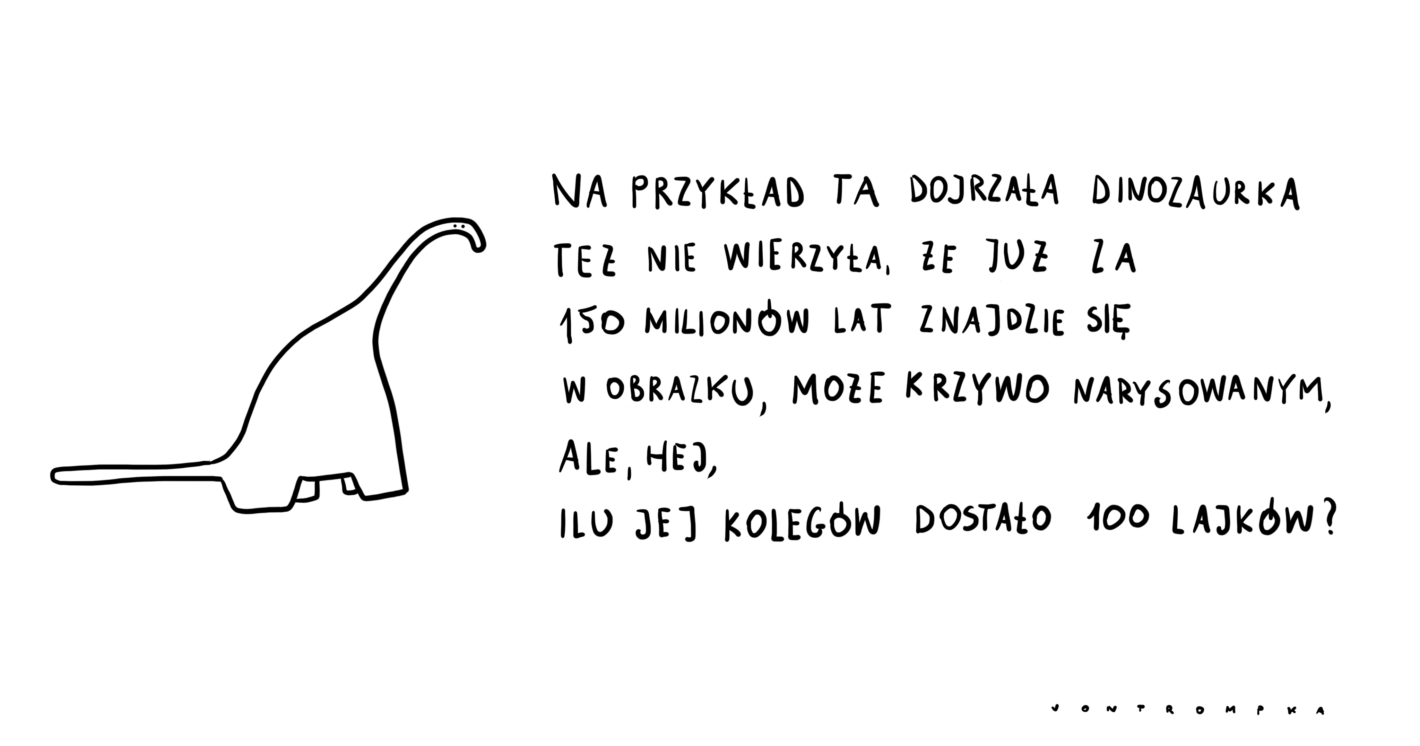 NA PRZYKŁAD TA DOJRZAŁA DINOZAURKA
TEŻ NIE WIERZYŁA, ŻE JUŻ ZA
150 MILIONÓW LAT ZNAJDZIE SIĘ
W OBRAZKU, MOŻE KRZYWO NARYSOWANYM,
ALE, HEJ,
ILU JEJ KOLEGÓW DOSTAŁO 100 LAJKÓW?
JONTROMPKA